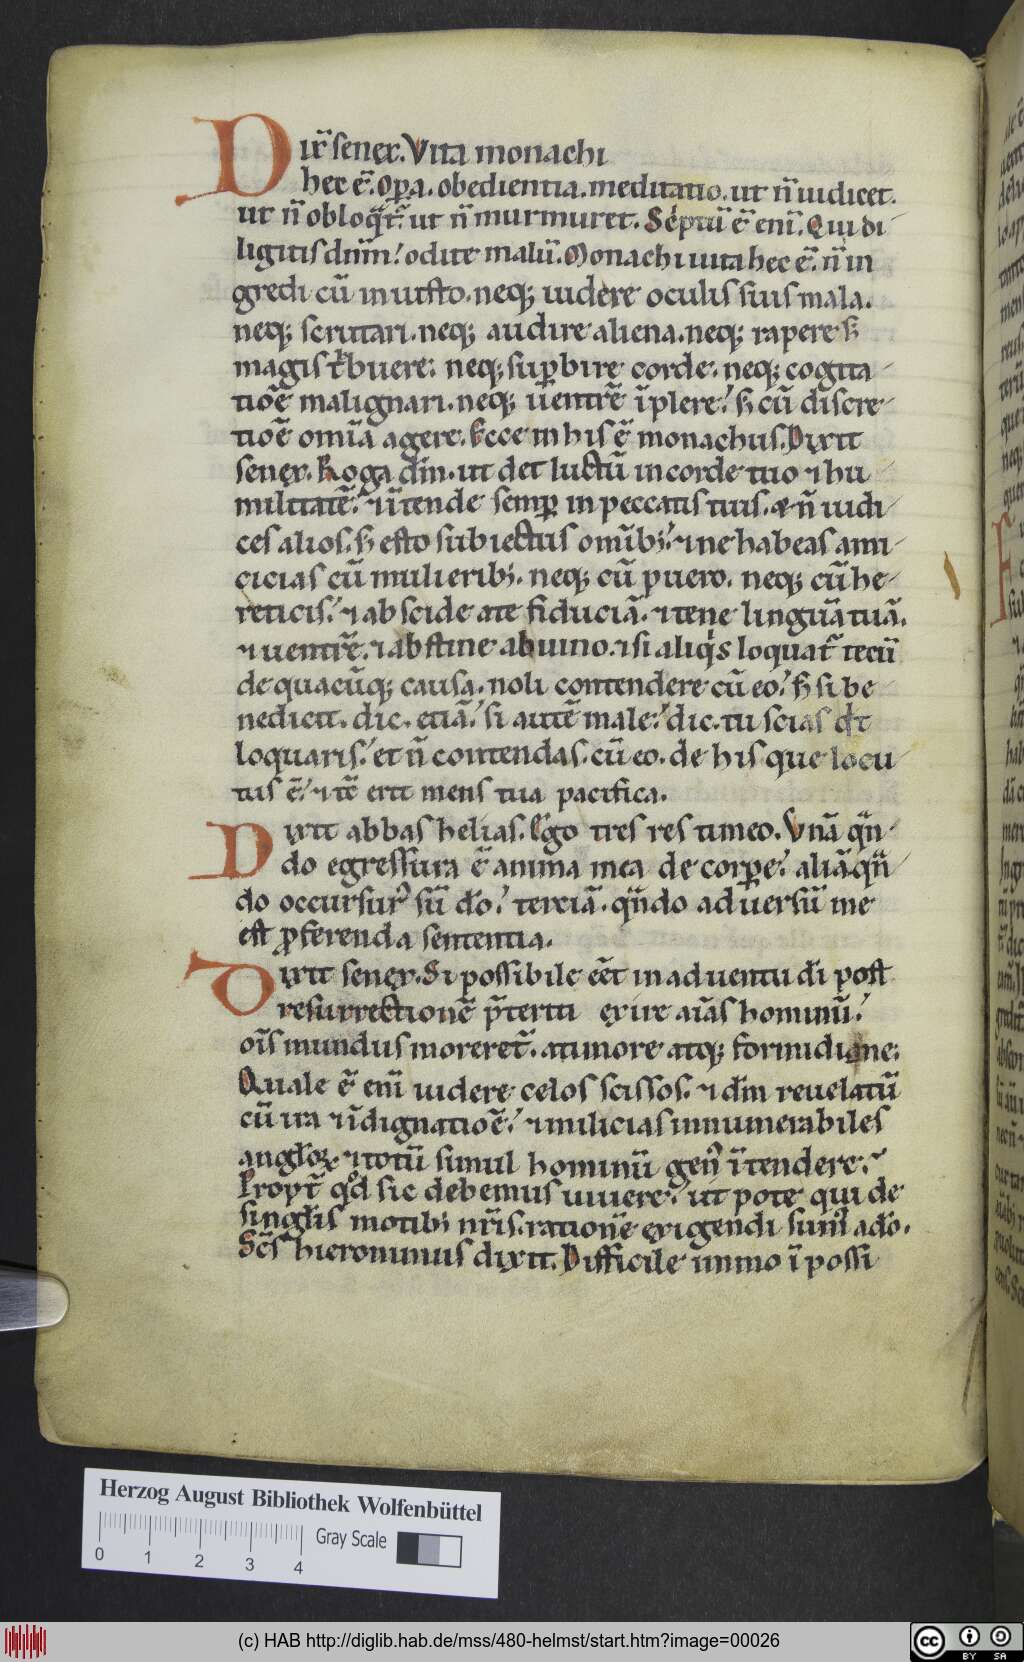 Dix̄ senex. Vita monachi
hec ē. Opa. obedientia. meditatio. ut n̄ iudicet.
ut n̄ obloq̄t᷑. ut n̄ murmuret. Sc̓ptū ē eni̅. Qui di
ligitis dn̄m! odite malū. Monachi uita hec ē. n̄ in
gredi cū iniusto. neq; uidere oculis suis mala.
neq; scrutari. neq; audire aliena. neq; rapere sꝫ
magis t̓buere. neq; suꝑbire corde. neq; cogita
tiōē malignari. neq; uentrē īplere! sꝫ cū discre
tiōē om̄ia agere. Ecce in his ē monachus. Dixit
senex. Roga dm̄. ut det luctū in corde tuo ⁊ hu
militatē. ⁊ ītende semꝑ in peccatis tuis. & n̄ iudi
ces alios. sꝫ esto subiectus omībꝫ! ⁊ ne habeas ami
cicias cū mulieribꝫ. neq; cū puero. neq; cū he
reticis! ⁊ abscide a te fiduciā. ⁊ tene linguā tuā.
⁊ uentrē. ⁊ abstine a uino. ⁊ si aliq̓s loquat᷑ tecū
de quacūq; causa. noli contendere cū eo! sꝫ si be
nedicit. dic. etiā! si autē male! dic. tu scias qd̄
loquaris! et n̄ contendas. cū eo. de his que locu
tus ē! ⁊ tc̄ erit mens tua pacifica.
Dixit abbas helias. Ego tres res timeo. Vnā qn̄
do egressura ē anima mea de corꝑe! aliā. qn̄
do occursurꝰ sū do̅! terciā. qn̄do aduersū me
est ꝓferenda sententia.
Dixit senex. Si possibile eēt in aduentu di̅ post
resurrectionē p̄tertti exire aīas hominū!
oīs mundus moreret᷑. a timore atq; formidine.
Quale ē eni̅ uidere celos scissos. ⁊ dm̄ reuelatū
cū ira ⁊ īdignatiōē! ⁊ milicias innumerabiles
anglōꝝ ⁊ totū simul hominū genꝰ ītendere.
Propt᷑ qd̄ sic debemus uiuere! ut pote qui de
singlis̄ motibꝫ nr̄is. rationē exigendi sumꝰ a do̅.
Sc̄s hieronimus dixit. Difficile immo īpossi
Herzog August Bibliothek Wolfenbüttel
0 1 2 3 4
Gray Scale
(c) HAB http://diglib.hab.de/mss/480-helmst/start.htm?image=00026
cc BY SA